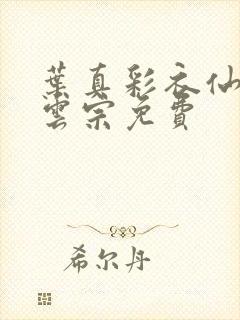 葉真彩衣仙
雲宗免費
希尔丹